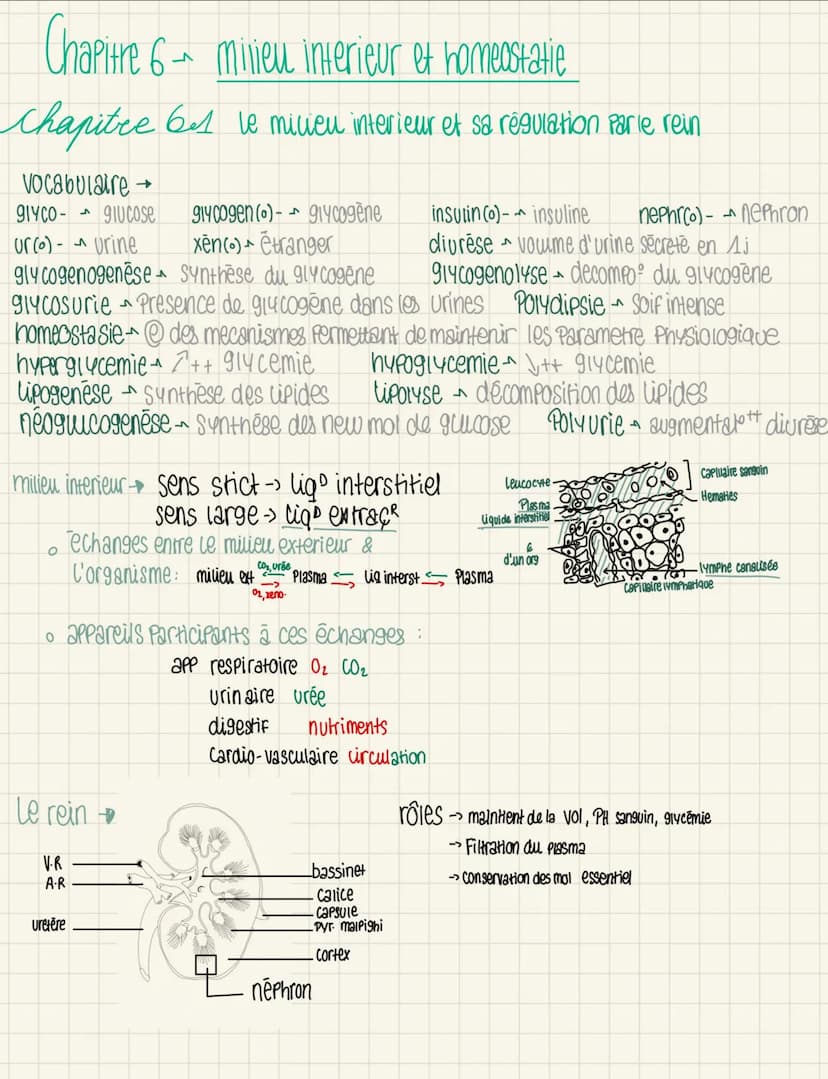 Chapitre 6 → milieu interieur et homeostatie
Chapitre 6.1 le milieu interieur et sa régulation par le rein
vocabulaire →
glyco- → glucose glycogen(o)- → glycogène insulin(o)- → insuline nephr(o)- → nephron
ur(o)- → urine xèn(o) → étranger diurèse → volume d'urine sécreté en 1j
glycogenogenèse → synthèse du glycogène glycogenolyse → decompo° du glycogène
glycosurie → Présence de glycogène dans les urines Polydipsie → Soif intense
homeostasie → © des mecanismes permettant de maintenir les parametre physiologique
hyperglycemie → ↗++ glycemie hypoglycemie → ↘++ glycemie
lipogenèse → synthèse des lipides lipolyse → décomposition des lipides
néoglucogenèse → synthèse des new mol de glucose Polyurie → augmentat° ++ diurèse
milieu interieur → sens stict → liqD interstitiel
sens large → liqD extraçR
échanges entre le milieu exterieur &
l'organisme : milieu ext ⇄ Plasma ⇄ liq interst ⇄ Plasma
CO2, urée
O2, xeno.
Leucocyte
Plasma
liquide interstitiel
d'un org
Capillaire sanguin
Hematies
lymphe canalisée
Capillaire lymphatique
appareils participants à ces échanges :
app respiratoire O2 CO2
urinaire urée
digestif nutriments
cardio-vasculaire circulation
Le rein →
V.R
A.R
uretère
bassinet
calice
capsule
pyr. malpighi
cortex
néphron
rôles → maintient de la vol, PH sanguin, glycémie
→ Filtration du plasma
→ conservation des mol essentiel